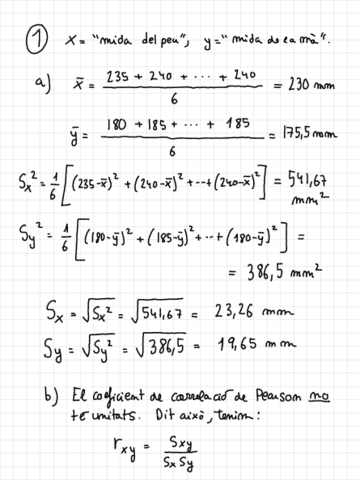 ① X = "mida del peu", y = "mida de la mà".
a) x̄ = (235 + 240 + ... + 240)/6 = 230 mm
ȳ = (180 + 185 + ... + 185)/6 = 175,5 mm
Sx² = 1/6 [(235-x̄)² + (240-x̄)² + ... + (240-x̄)²] = 541,67 mm²
Sy² = 1/6 [(180-ȳ)² + (185-ȳ)² + ... + (180-ȳ)²] =
= 386,5 mm²
Sx = √Sx² = √541,67 = 23,26 mm
Sy = √Sy² = √386,5 = 19,65 mm
b) El coeficient de correlació de Pearson no
té unitats. Dit això, tenim:
rxy = Sxy/(Sx Sy)